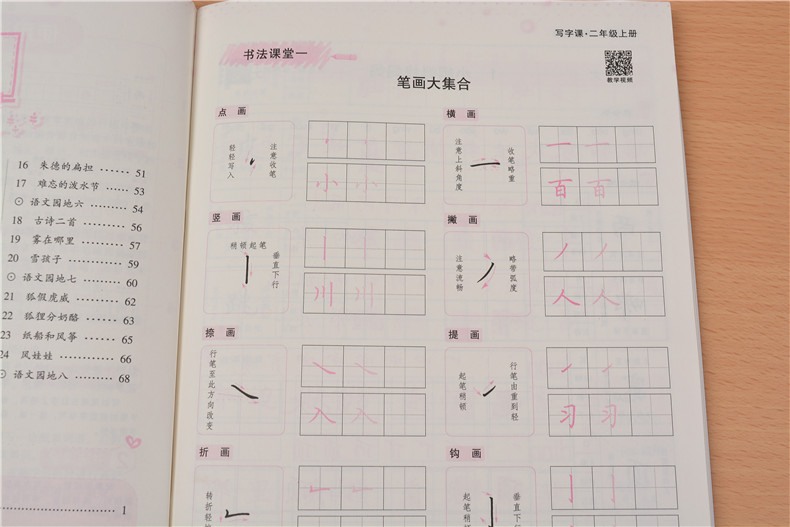 16 朱德的扁担 …… 51
17 难忘的泼水节 …… 53
⊙ 语文园地六 …… 54
18 古诗二首 …… 56
19 雾在哪里 …… 57
20 雪孩子 …… 59
⊙ 语文园地七 …… 60
21 狐假虎威 …… 62
22 狐狸分奶酪 …… 63
23 纸船和风筝 …… 65
24 风娃娃 …… 66
⊙ 语文园地八 …… 68
1
写字课·二年级上册
教学视频
书法课堂一
笔画大集合
点 画
轻轻写入
注意收笔
小 小
横 画
注意上斜角度
收笔略重
一 一
百 百
竖 画
稍顿起笔
垂直下行
川 川
撇 画
注意流畅
略带弧度
人 人
捺 画
行笔至此方向改变
入 入
提 画
起笔稍顿
行笔由重到轻
习 习
折 画
转折轻
钩 画
起笔稍
垂直下行